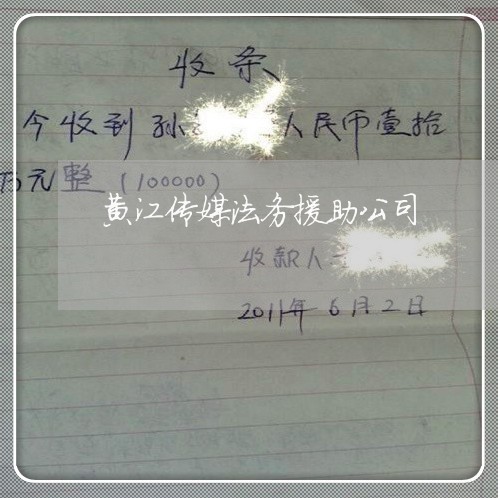 收条
今收到孙 人民币壹拾
万元整(100000)
黄江传媒法务援助公司
收款人
2011年6月2日